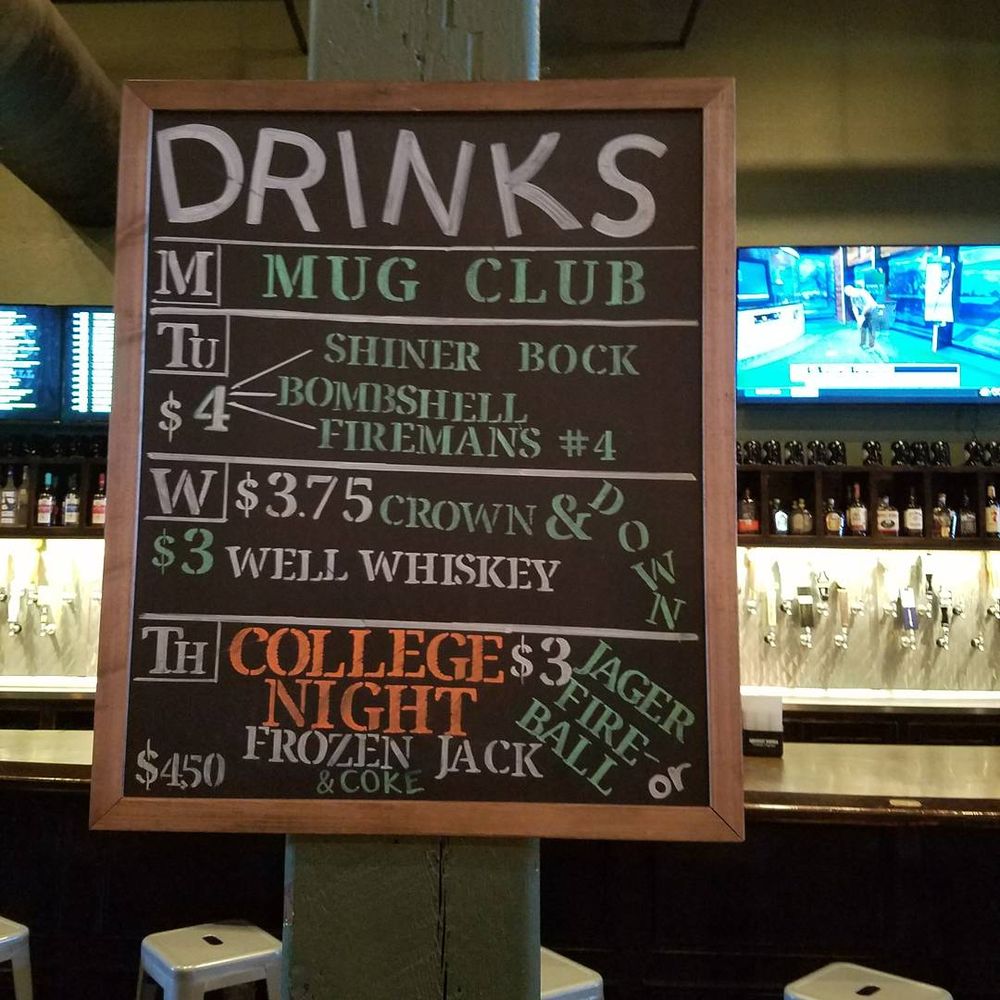 DRINKS
M MUG CLUB
TU SHINER BOCK
$4 BOMBSHELL
FIREMANS #4
W $3.75 CROWN & DOWN
$3 WELL WHISKEY
TH COLLEGE $3 JAGER
NIGHT FIRE-
BALL or
FROZEN JACK
$4.50 & COKE